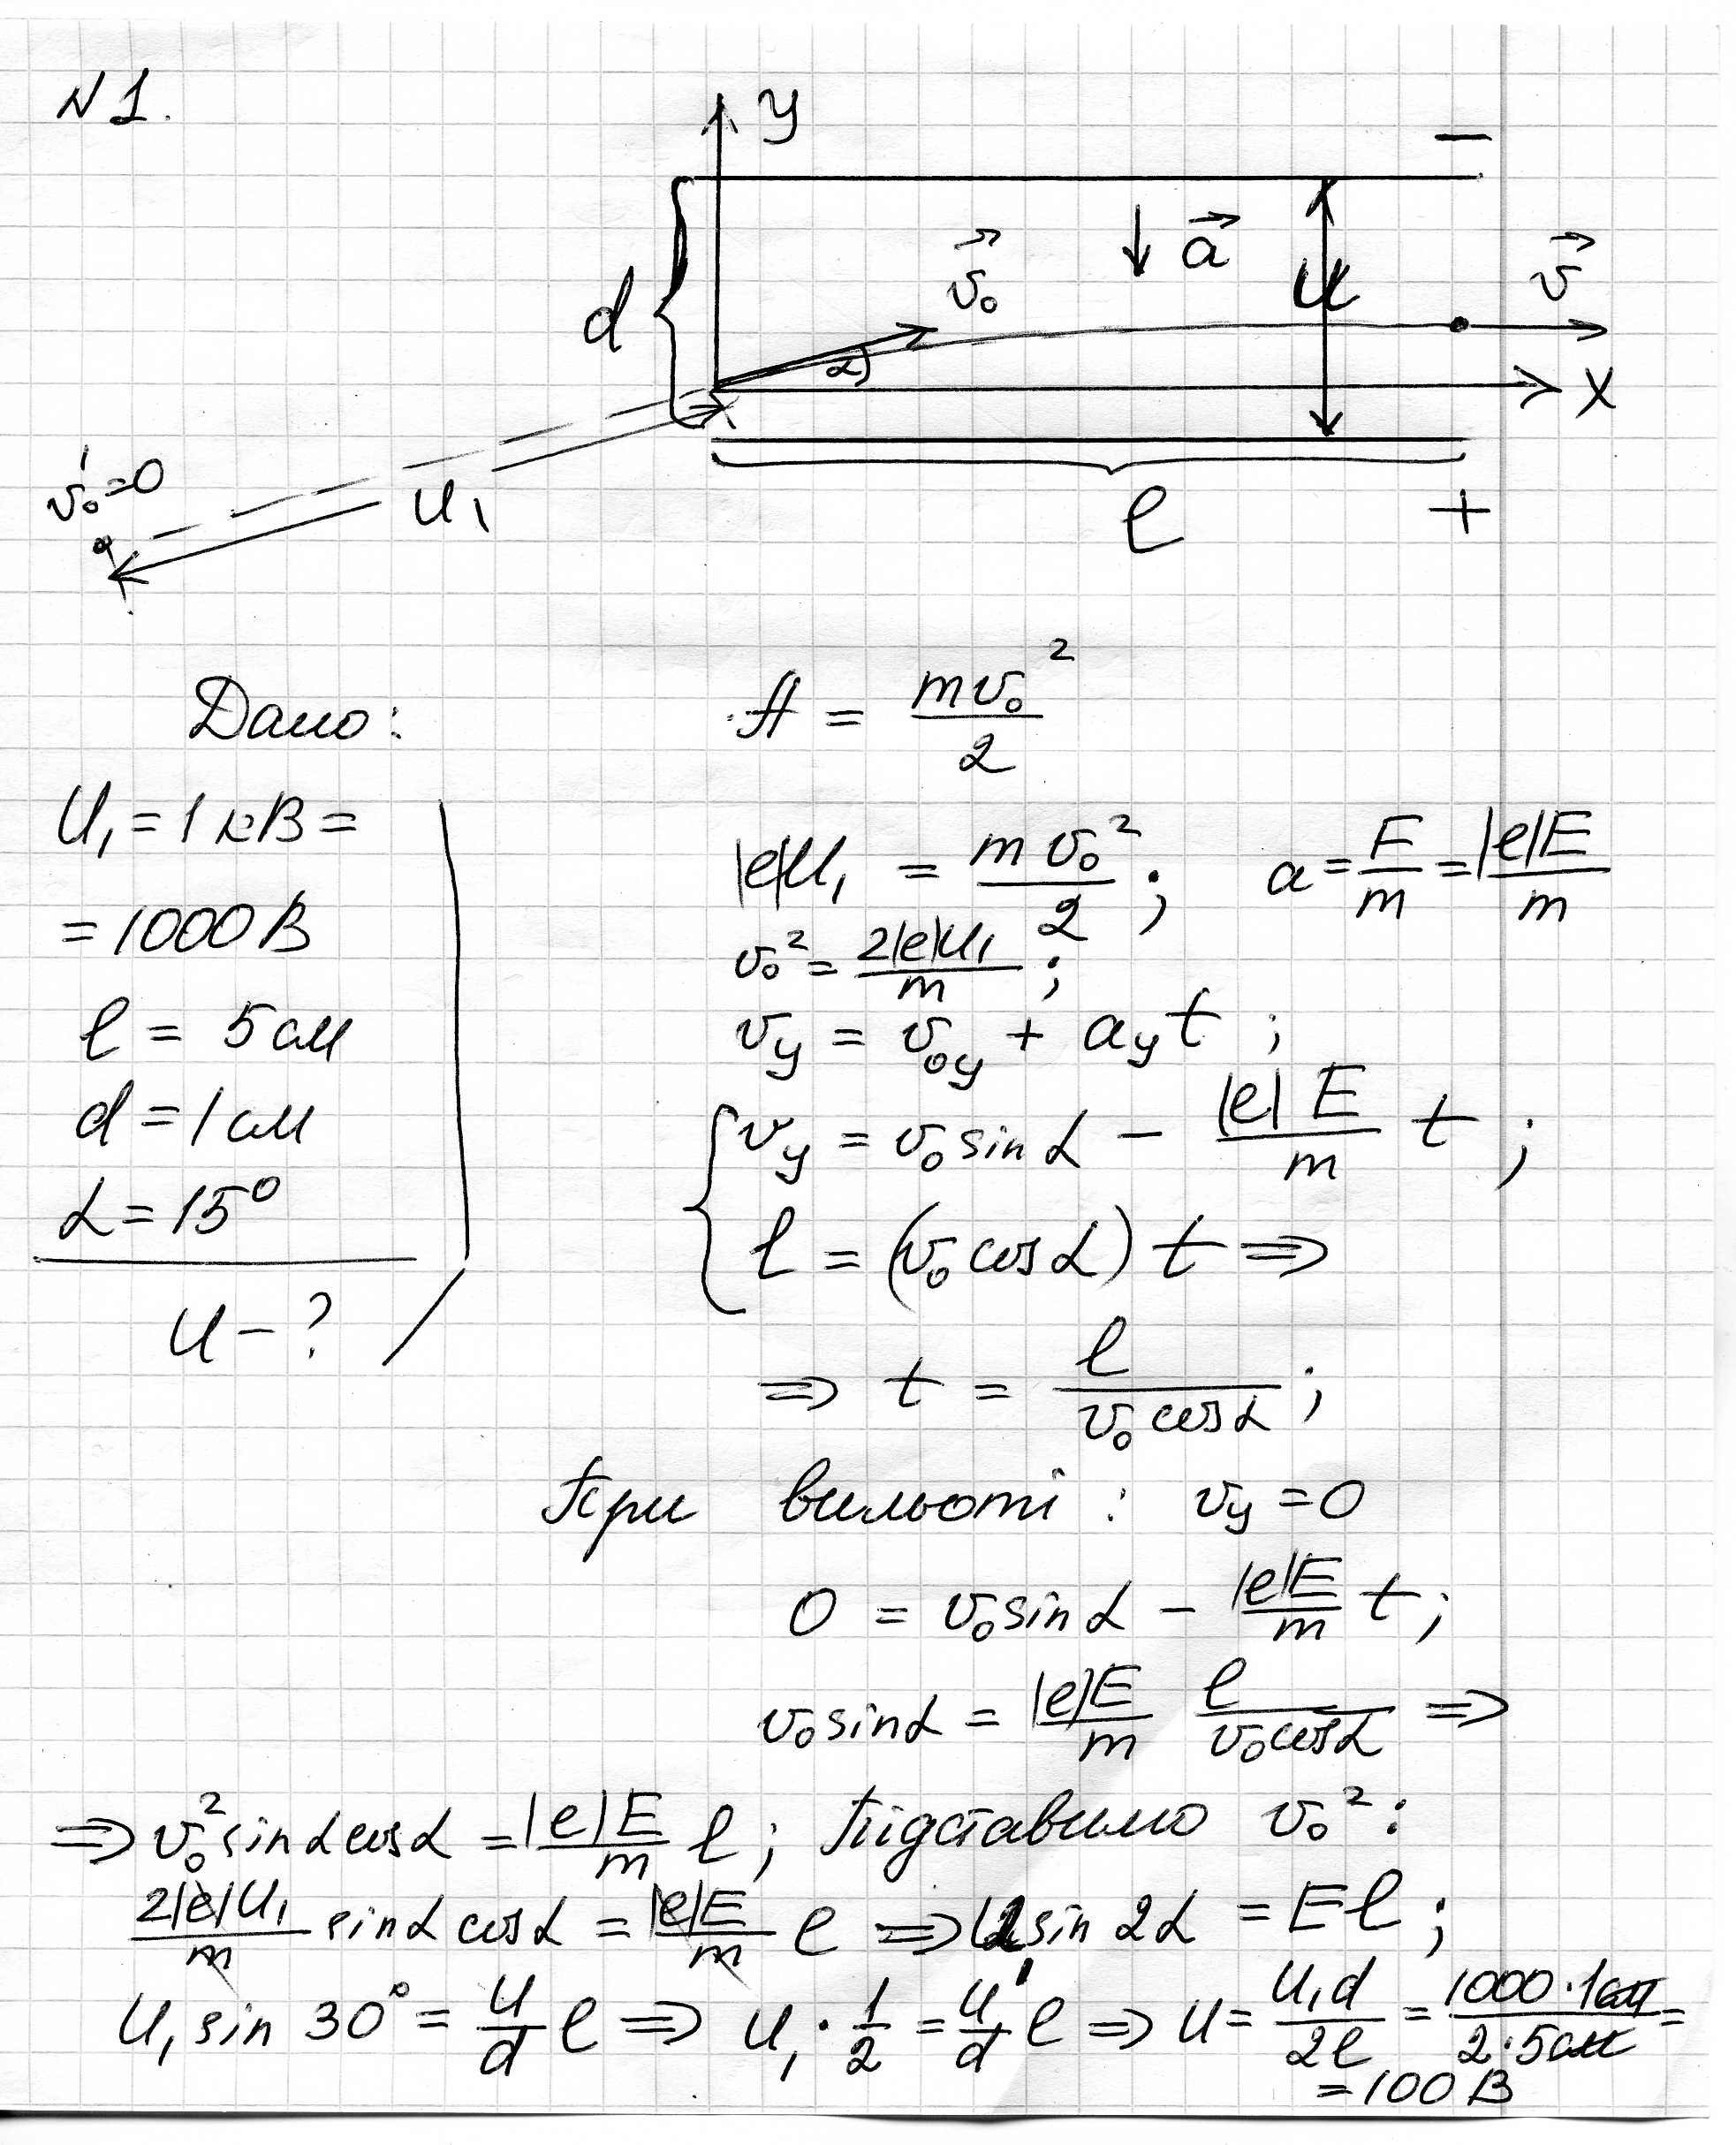 N1.
y
−
d
v⃗₀
a⃗
U
v⃗
α
x
v₀'=0
U₁
l
+
Дано:
U₁ = 1 кВ =
= 1000 В
l = 5 см
d = 1 см
α = 15°
U − ?
A = mv₀²/2
|e|U₁ = mv₀²/2 ; a = F/m = |e|E/m
v₀² = 2|e|U₁/m ;
v_y = v₀y + a_y t ;
v_y = v₀ sin α − |e|E/m t ;
l = (v₀ cos α) t ⇒
⇒ t = l/(v₀ cos α) ;
При вильоті : v_y = 0
0 = v₀ sin α − |e|E/m t ;
v₀ sin α = |e|E/m l/(v₀ cos α) ⇒
⇒ v₀² sin α cos α = |e|E/m l ; Підставимо v₀² :
2|e|U₁/m sin α cos α = |e|E/m l ⇒ U₁ sin 2α = El ;
U₁ sin 30° = U/d l ⇒ U₁ · 1/2 = U/d l ⇒ U = U₁d/2l = 1000·1см/2·5см =
= 100 В